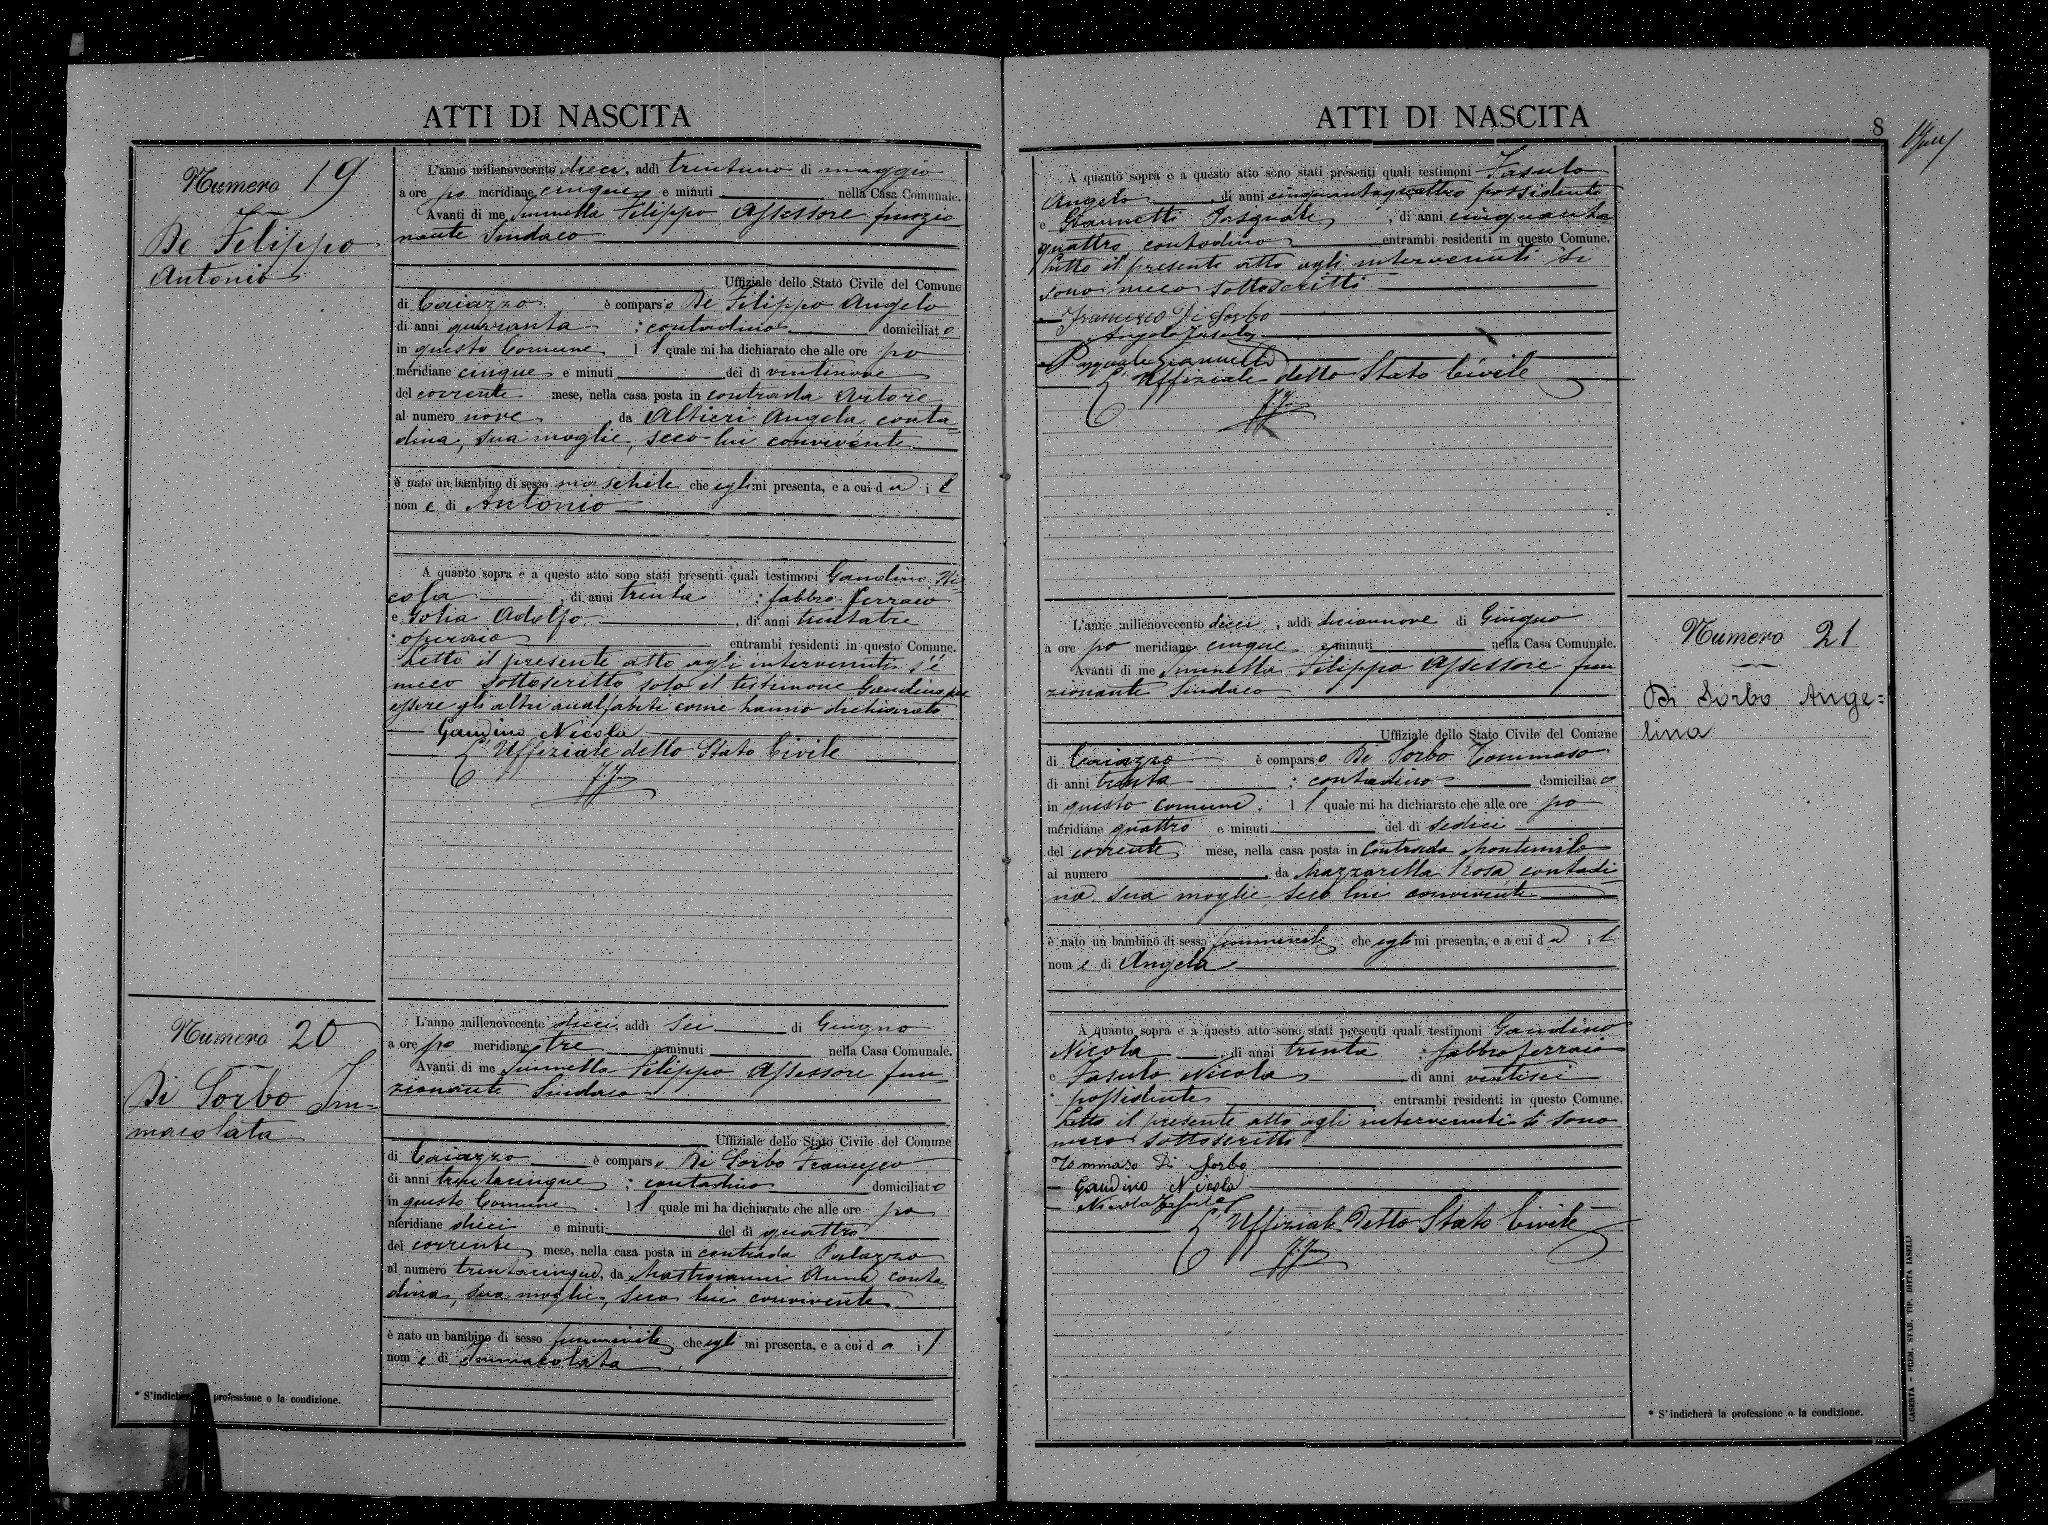 ATTI DI NASCITA
Numero 19
De Filippo
Antonio
L'anno millenovecento dieci, addì trentuno di maggio
a ore po meridiane cinque e minuti nella Casa Comunale.
Avanti di me Filippo Assessore funzio
nante Sindaco
Uffiziale dello Stato Civile del Comune
di Caiazzo è comparso De Filippo Angelo
di anni quaranta ; contadino domiciliato
in questo Comune, il quale mi ha dichiarato che alle ore po
meridiane cinque e minuti del dì ventinove
del corrente mese, nella casa posta in contrada
al numero nove da Altieri Angela conta-
dina, sua moglie, seco lui convivente
è nato un bambino di sesso maschile che egli mi presenta, e a cui dà il
nome di Antonio
A quanto sopra e a questo atto sono stati presenti quali testimoni Gaudino Ni-
cola, di anni trenta ; fabbro ferraio
e Golia Adolfo, di anni trentatre
; operaio entrambi residenti in questo Comune.
Letto il presente atto agli intervenuti s'è
meco sottoscritto solo il testimone Gaudino per
essere gli altri analfabeti come hanno dichiarato
Gaudino Nicola
L'Uffiziale dello Stato Civile
Numero 20
Di Sorbo Im-
macolata
L'anno millenovecento dieci, addì sei di Giugno
a ore po meridiane tre e minuti nella Casa Comunale.
Avanti di me Filippo Assessore fun
zionante Sindaco
Uffiziale dello Stato Civile del Comune
di Caiazzo è comparso Di Sorbo Francesco
di anni trentacinque ; contadino domiciliato
in questo Comune, il quale mi ha dichiarato che alle ore po
meridiane dieci e minuti del dì quattro
del corrente mese, nella casa posta in contrada Palazzo
al numero trentacinque, da Mastroianni Anna conta-
dina, sua moglie, seco lui convivente
è nato un bambino di sesso femminile che egli mi presenta, e a cui dà il
nome di Immacolata
* S'indicherà la professione o la condizione.
ATTI DI NASCITA
8
A quanto sopra e a questo atto sono stati presenti quali testimoni Fasulo
Angelo, di anni cinquantaquattro possidente
e Giannetti Pasquale, di anni cinquanta
quattro contadino entrambi residenti in questo Comune.
Letto il presente atto agli intervenuti si
sono meco sottoscritti
Francesco Di Sorbo
Angelo Fasulo
Pasquale Giannetti
L'Uffiziale dello Stato Civile
L'anno millenovecento dieci, addì diciannove di Giugno
a ore po meridiane cinque e minuti nella Casa Comunale.
Avanti di me Filippo Assessore fun
zionante Sindaco
Uffiziale dello Stato Civile del Comune
di Caiazzo è comparso De Sorbo Tommaso
di anni trenta ; contadino domiciliato
in questo comune, il quale mi ha dichiarato che alle ore po
meridiane quattro e minuti del dì sedici
del corrente mese, nella casa posta in Contrada
al numero da Mazzarella Rosa contadi
na sua moglie seco lui convivente
è nato un bambino di sesso femminile che egli mi presenta, e a cui dà il
nome di Angela
A quanto sopra e a questo atto sono stati presenti quali testimoni Gaudino
Nicola, di anni trenta fabbro ferraio
e Fasulo Nicola di anni ventisei
; possidente entrambi residenti in questo Comune.
Letto il presente atto agli intervenuti si sono
meco sottoscritti
Tommaso Di Sorbo
Gaudino Nicola
Nicola Fasulo
L'Uffiziale dello Stato Civile
Numero 21
Di Sorbo Ange-
lina
* S'indicherà la professione o la condizione.
CASERTA - PREM. STAB. TIP. DITTA IASELLI